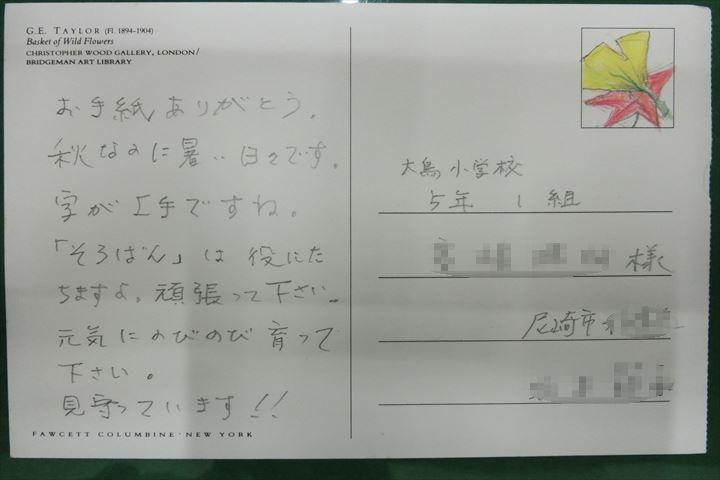 G.E. TAYLOR (Fl. 1894-1904)
Basket of Wild Flowers
CHRISTOPHER WOOD GALLERY, LONDON/
BRIDGEMAN ART LIBRARY
お手紙ありがとう。
秋なのに暑い日々です。
字が上手ですね。
「そろばん」は役にた
ちますよ。頑張って下さい。
元気にのびのび育って
下さい。
見守っています!!
FAWCETT COLUMBINE · NEW YORK
大島小学校
5年1組
様
尼崎市